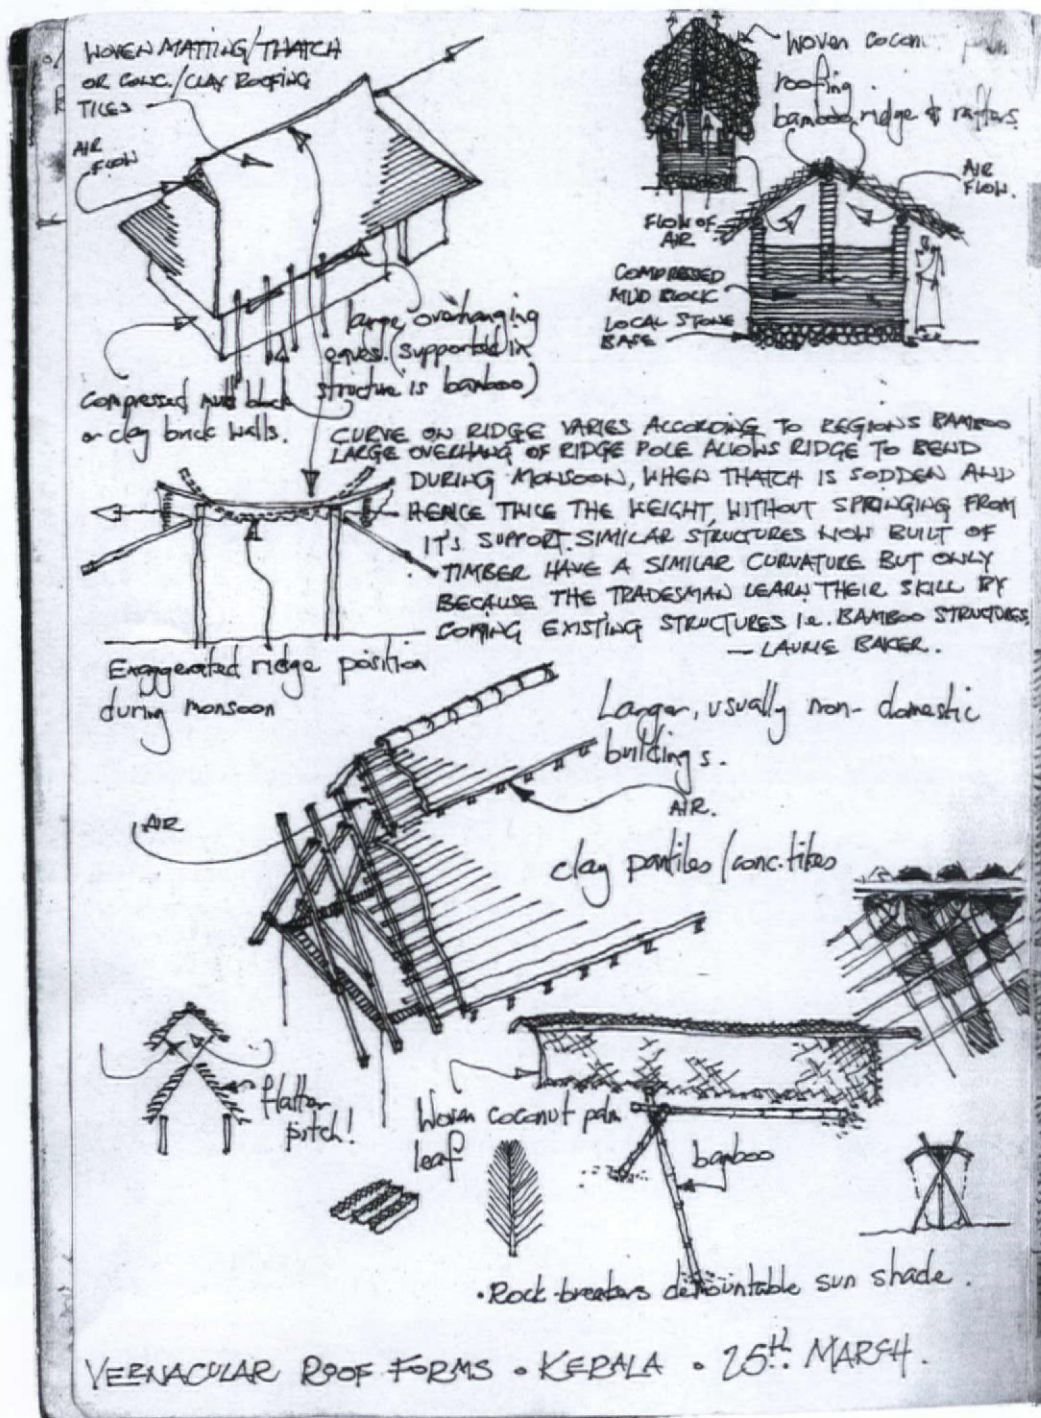 WOVEN MATTING/THATCH
OR CONC./CLAY ROOFING
TILES
AIR
FLOW
large overhanging
eaves. (supported in
structure is bamboo)
Compressed mud block
or clay brick walls.
Woven
roofing.
bamboo ridge & rafters
AIR
FLOW.
FLOW OF
AIR
COMPRESSED
MUD BLOCK
LOCAL STONE
BASE
CURVE ON RIDGE VARIES ACCORDING TO REGIONS BAMBOO
LARGE OVERHANG OF RIDGE POLE ALLOWS RIDGE TO BEND
DURING MONSOON, WHEN THATCH IS SODDEN AND
HENCE TWICE THE WEIGHT, WITHOUT SPRINGING FROM
IT'S SUPPORT. SIMILAR STRUCTURES NOW BUILT OF
TIMBER HAVE A SIMILAR CURVATURE BUT ONLY
BECAUSE THE TRADESMAN LEARN THEIR SKILL BY
COMING EXISTING STRUCTURES i.e. BAMBOO STRUCTURES
— LAURIE BAKER.
Exaggerated ridge position
during monsoon
Larger, usually non-domestic
buildings.
AIR
AIR.
clay pantiles/conc. tiles
flatter
pitch!
Woven coconut palm
leaf
bamboo
• Rock-breakers demountable sun shade.
VERNACULAR ROOF FORMS • KERALA • 25th. MARCH.